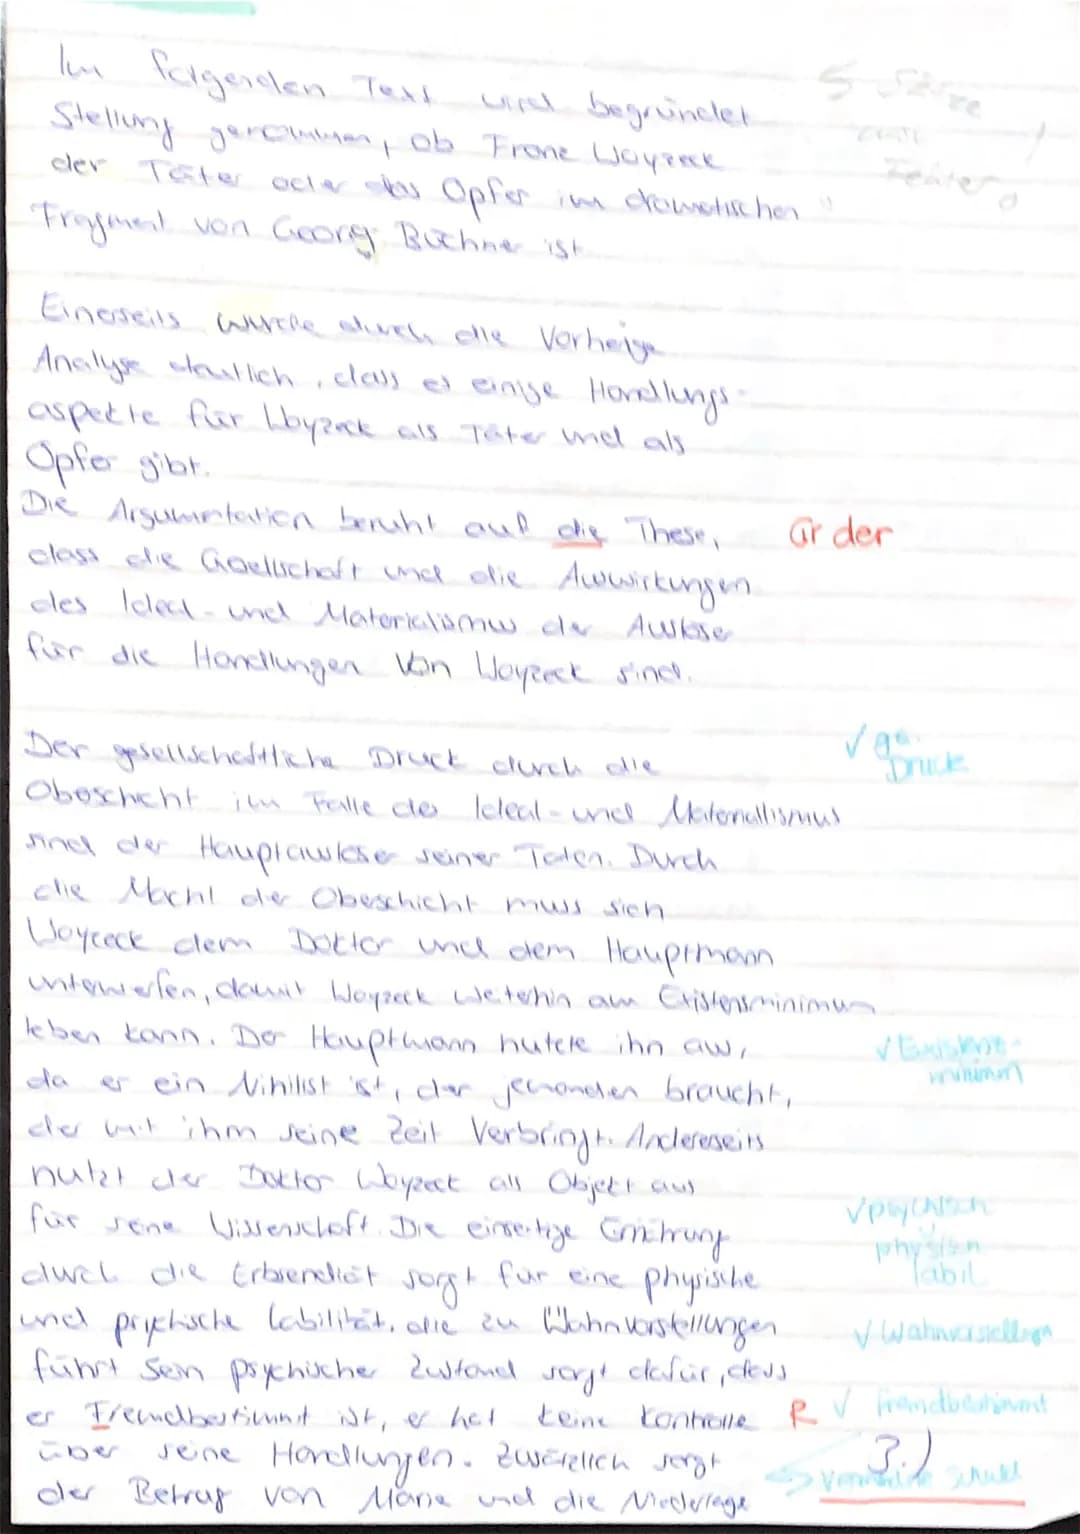 Im folgenden Text wird begründet
5 Sätze
Stellung genommen, ob Franz Woyzeck
Fehler
der Täter oder das Opfer im dramatischen
Fragment von Georg Büchner ist
Einerseits wurde durch die Vorheige
Analyse deutlich, dass es einige Handlungs-
aspekte für Woyzeck als Täter und als
Opfer gibt.
Die Argumentation beruht auf die These, Gr der
dass die Gesellschaft und die Auswirkungen
des Ideal- und Materialismus der Auslöser
für die Handlungen von Woyzeck sind.
Der gesellschaftliche Druck durch die √ ge. Druck
Obeschicht im Falle des Ideal- und Materiallismus
sind der Hauptauslöser seiner Taten. Durch
die Macht der Obeschicht muss sich
Woyceck dem Doktor und dem Hauptmann
unterwerfen, damit Woyzeck weiterhin am Existensminimum
leben kann. Der Hauptmann nutzte ihn aus, √ Existenz-
minimum
da er ein Nihilist ist, der jemanden braucht,
der mit ihm seine Zeit Verbringt. Andererseits
nutzt der Doktor Woyzeck als Objekt aus
√ psychisch
für seine Wissenschaft. Die einseitige Ernährung
physisch
labil
durch die Erbsendiät sorgt für eine physische
und psychische Labilität, die zu Wahnvorstellungen √ Wahnvorstellungen
führt Sein psychischer Zustand sorgt dafür, dass
er Fremdbestimmt ist, er hat keine Kontrolle R √ fremdbestimmt
über seine Handlungen. Zusätzlich sorgt 3.)
Schuld
der Betrug von Marie und die Niederlage